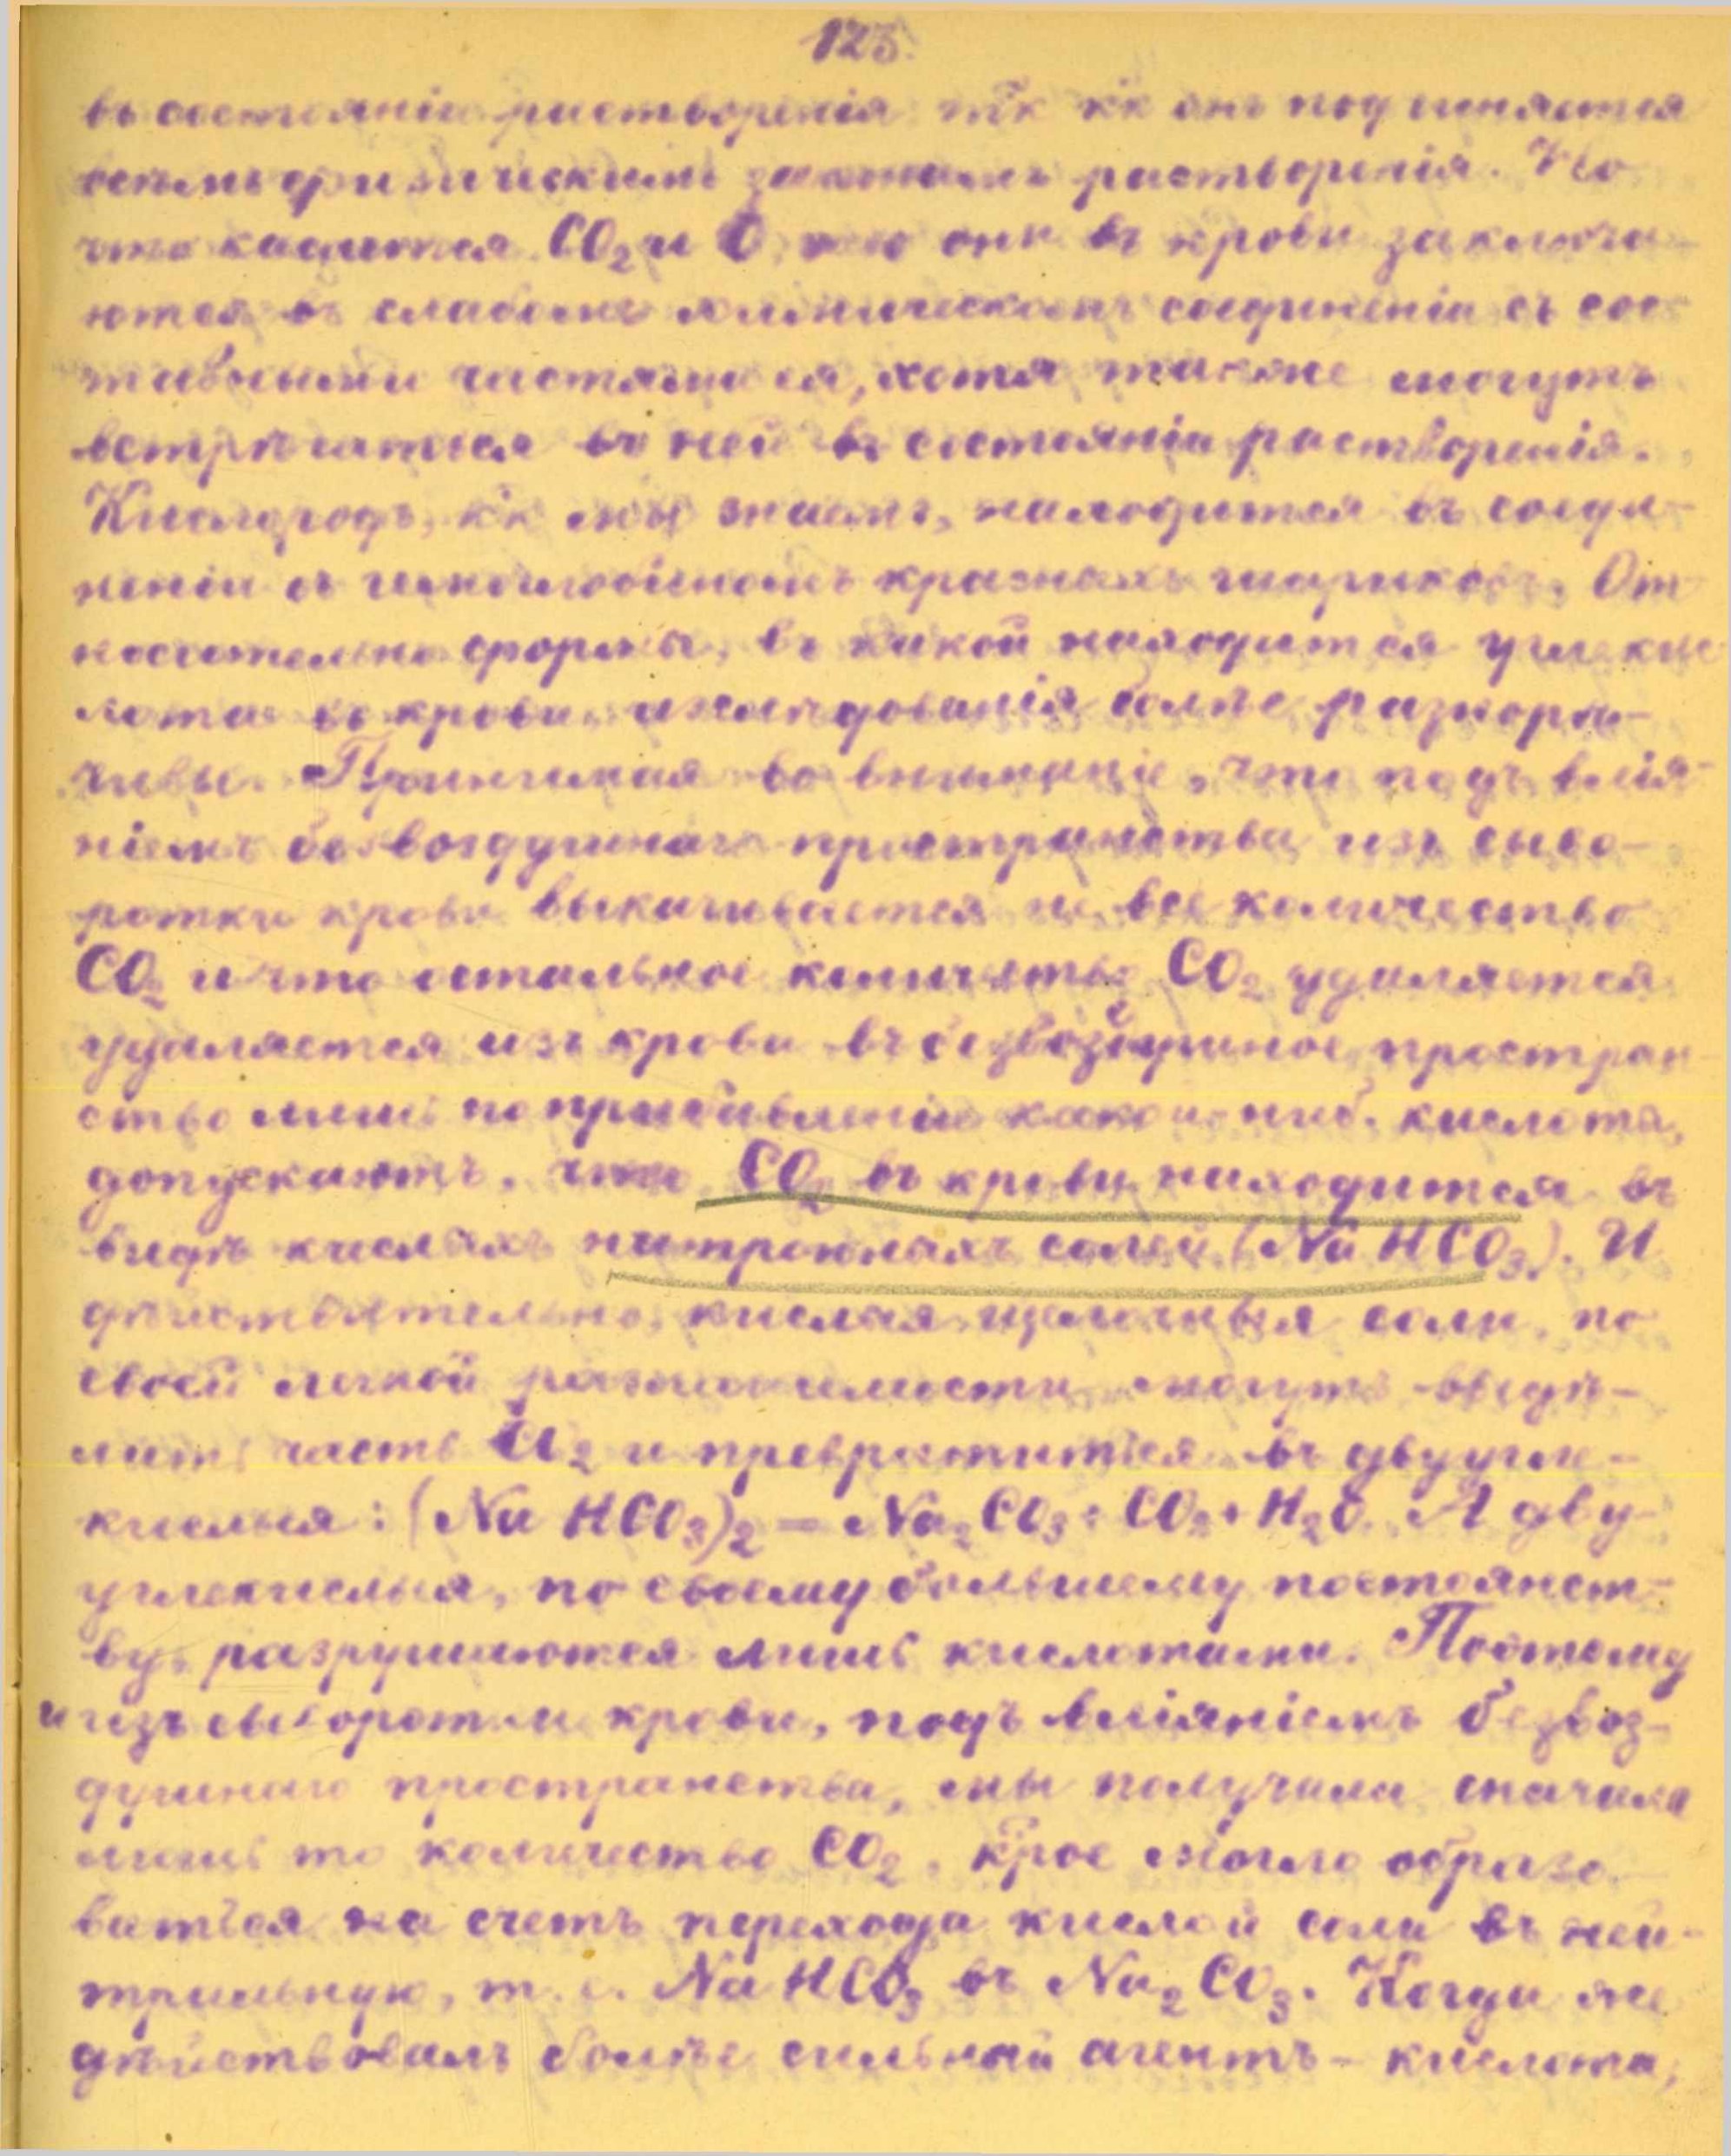 123.
въ состояніи растворенія т̃к к̃к онъ подчиняется
всѣмъ физическимъ законамъ растворенія. Но
что касается CO₂ и O, то они въ крови заключа-
ются въ слабомъ химическомъ соединеніи съ сос-
тавными частями ея, хотя также могутъ
встрѣчаться въ ней въ состояніи растворенія.
Кислородъ, к̃к мы знаемъ, находится въ соеди-
неніи съ гемоглобиномъ красныхъ шариковъ. От-
носительно формы, въ какой находится углекис-
лота въ крови, изслѣдованія болѣе разнорѣ-
чивы. Принимая во вниманіе, что подъ влія-
ніемъ безвоздушнаго пространства изъ сыво-
ротки крови выкачивается не все количество
CO₂ и что остальное количество CO₂ удаляется
удаляется изъ крови въ безвоздушное простран-
ство лишь по прибавленіи какой-ниб. кислоты,
допускаютъ, что CO₂ въ крови находится въ
видѣ кислыхъ натронныхъ солей (NaHCO₃). И
дѣйствительно, кислыя щелочныя соли, по
своей легкой разложимости, могутъ выдѣ-
лить часть CO₂ и превратиться въ двуугле-
кислыя: (NaHCO₃)₂ = Na₂CO₃ + CO₂ + H₂O. А дву-
углекислыя, по своему большему постоянст-
ву, разрушаются лишь кислотами. Поэтому
и изъ сыворотки крови, подъ вліяніемъ безвоз-
душнаго пространства, мы получили сначала
лишь то количество CO₂, к̃рое могло образо-
ваться на счетъ перехода кислой соли въ ней-
тральную, т. е. NaHCO₃ въ Na₂CO₃. Когда же
дѣйствовалъ болѣе сильный агентъ - кислота,